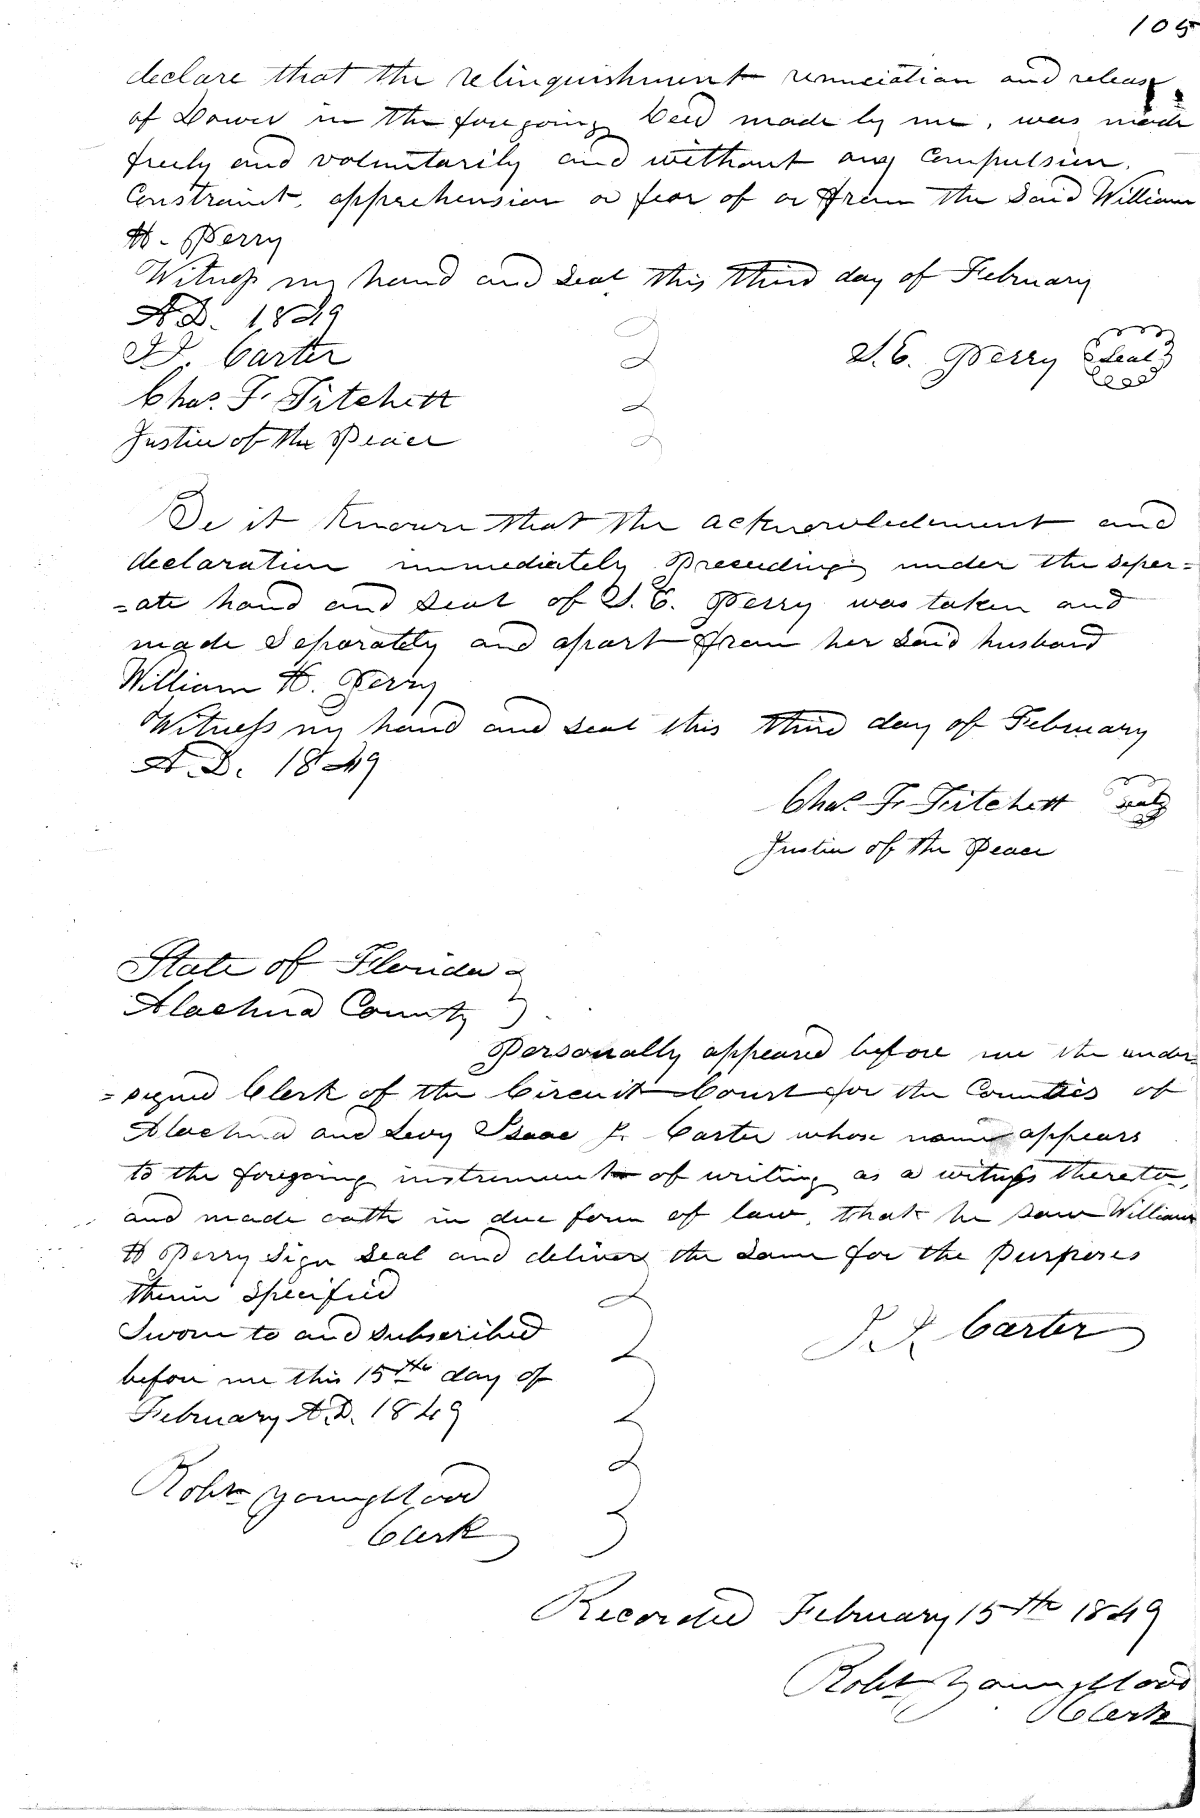 105
declare that the relinquishment renunciation and release
of Dower in the foregoing Deed made by me, was made
freely and voluntarily and without any Compulsion,
Constraint, apprehension or fear of or from the Said William
H. Perry
Witness my hand and seal this third day of February
A.D. 1849
I. J. Carter S. E. Perry Seal
Chas. F. Fitchett
Justice of the Peace
Be it Known that the acknowledement and
declaration immediately Preceeding under the seper=
=ate hand and seal of S. E. Perry was taken and
made Separately and apart from her Said husband
William H. Perry
Witness my hand and seal this third day of February
A.D. 1849
Chas. F. Fitchett seal
Justice of the Peace
State of Florida
Alachua County
Personally appeared before me the under=
=signed Clerk of the Circuit Court for the Counties of
Alachua and Levy Isaac J. Carter whose name appears
to the foregoing instrument of writing as a witness thereto,
and made oath in due form of law, that he saw William
H Perry Sign Seal and deliver the Same for the Purposes
therein Specified
Sworn to and subscribed I. J. Carter
before me this 15th day of
February A.D. 1849
Robt Youngblood
Clerk
Recorded February 15th 1849
Robt Youngblood
Clerk